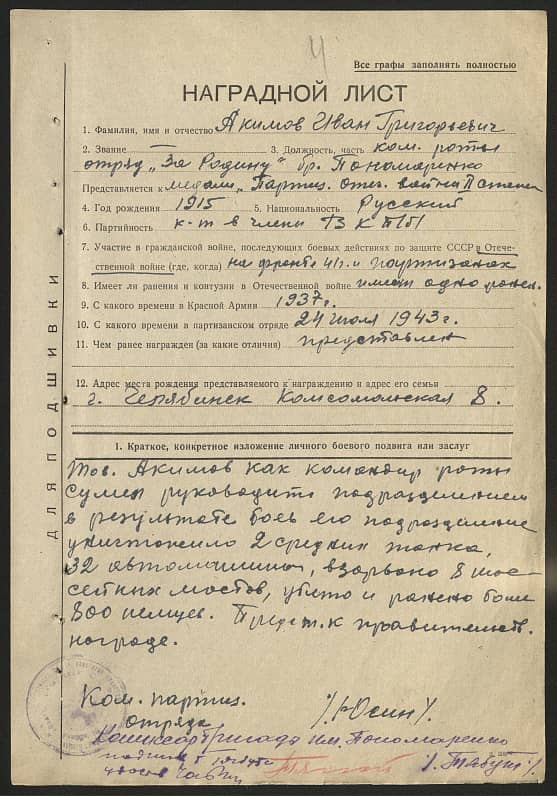 Все графы заполнять полностью
НАГРАДНОЙ ЛИСТ
1. Фамилия, имя и отчество Акимов Иван Григорьевич
2. Звание 3. Должность, часть ком. роты
отряд „За Родину" бр. Пономаренко
Представляется к медали „Партиз. отеч. войны II степени
4. Год рождения 1915 5. Национальность Русский
6. Партийность к-т в члены ВКП/б/
7. Участие в гражданской войне, последующих боевых действиях по защите СССР и Отече-
ственной войне (где, когда) на фронте 41г. и партизанах
8. Имеет ли ранения и контузии в Отечественной войне имеет одно ранен.
9. С какого времени в Красной Армии 1937г.
10. С какого времени в партизанском отряде 24 июля 1943г.
11. Чем ранее награжден (за какие отличия) представлен
12. Адрес места рождения представляемого к награждению и адрес его семьи
г. Челябинск Комсомольская 8.
ДЛЯ ПОДШИВКИ
1. Краткое, конкретное изложение личного боевого подвига или заслуг
Тов. Акимов как командир роты
сумел руководить подразделением
в результате боев его подразделение
уничтожило 2 средних танка,
32 автомашины, взорвано 8 шос-
сейных мостов, убито и ранено более
800 немцев. Предст. к правительств.
награде.
Ком. партиз.
отряда /Юсин/.
Комиссар бригады им. Пономаренко
/. Тябут /.